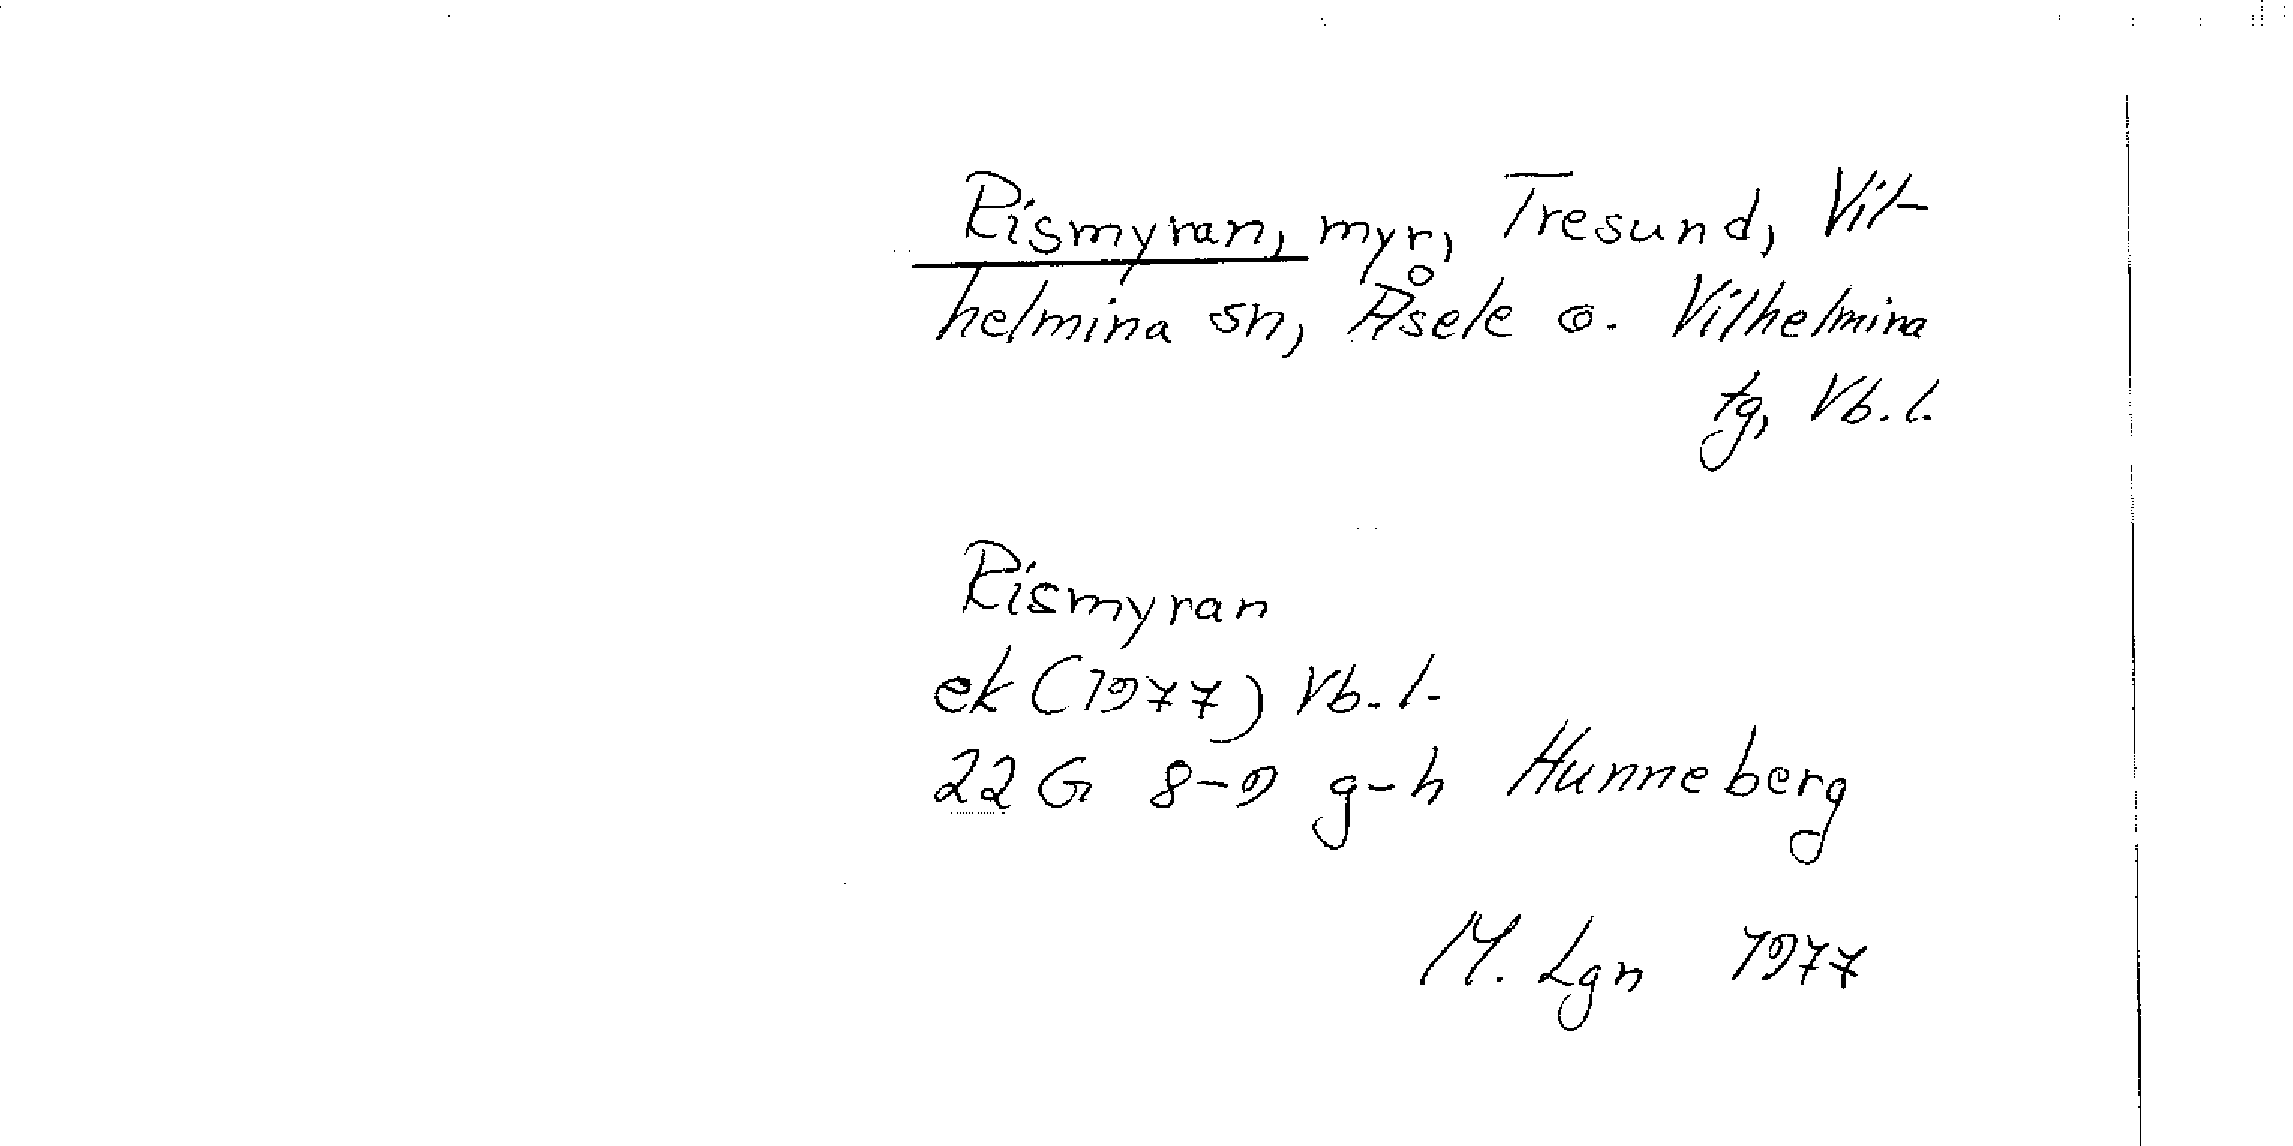 Rismyran, myr, Tresund, Vil-
helmina sn, Åsele o. Vilhelmina
tg, Vb. l.
Rismyran
ek (1977) Vb. l.
22 G 8-9 g-h Hunneberg
M. Lgn 1977